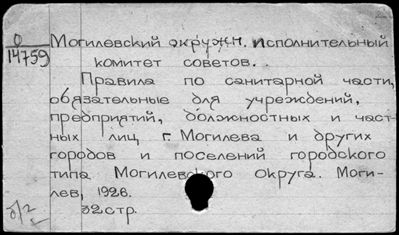 О
14759
Могилевский окружн. исполнительный
комитет советов.
Правила по санитарной части,
обязательные для учреждений,
предприятий, должностных и част-
ных лиц г. Могилева и других
городов и поселений городского
типа Могилевского округа. Моги-
лев, 1926.
32 стр.
б/г